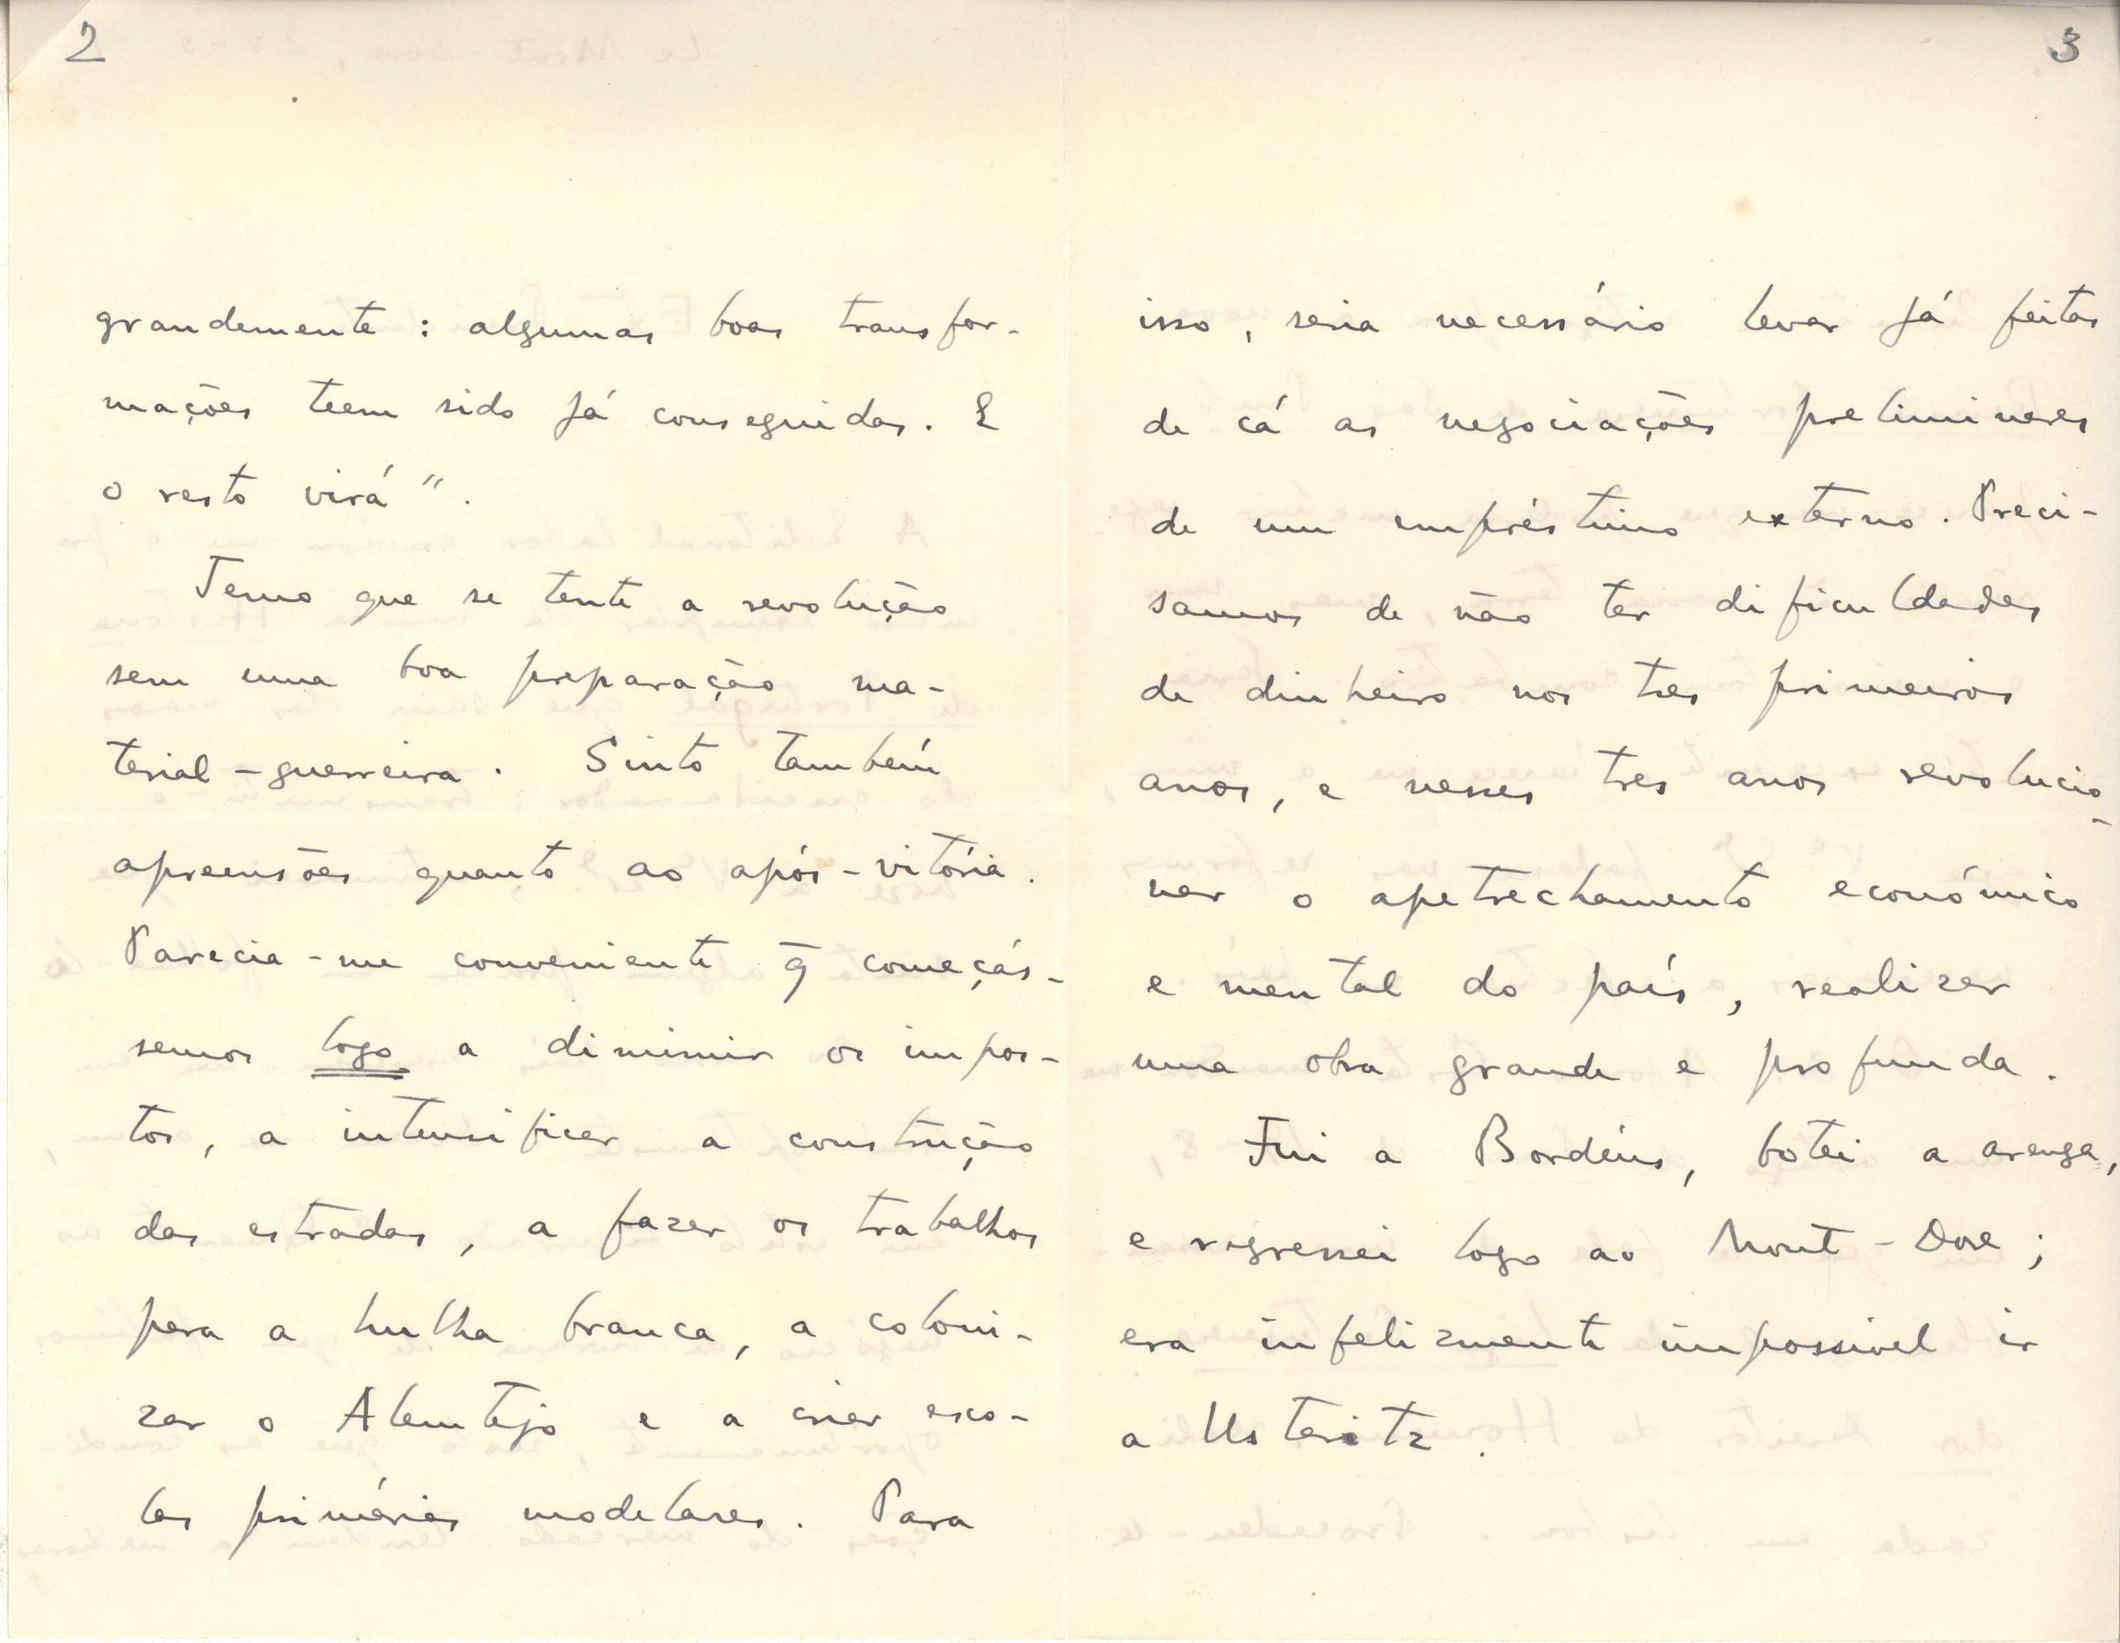 2
grandemente : algumas boas transfor-
mações teem sido já conseguidas. E
o resto virá".
Temo que se tente a revolução
sem uma boa preparação ma-
terial-guerreira. Sinto também
apreensões quanto ao após-vitória.
Parecia-me conveniente q̄ começás-
semos logo a diminuir os impos-
tos, a intensificar a construção
das estradas, a fazer os trabalhos
pera a hulha branca, a coloni-
zar o Alemtejo e a criar esco-
las primárias modelares. Para
3
isso, seria necessário levar já feitas
de cá as negociações preliminares
de um empréstimo externo. Preci-
samos de não ter dificuldades
de dinheiro nos tres primeiros
anos, e nesses tres anos revolucio-
nar o apetrechamento económico
e mental do país, realizar
uma obra grande e profunda.
Fui a Bordéus, botei a arenga,
e regressei logo ao Mont-Dore;
era infelizmente impossivel ir
a Ustaritz.